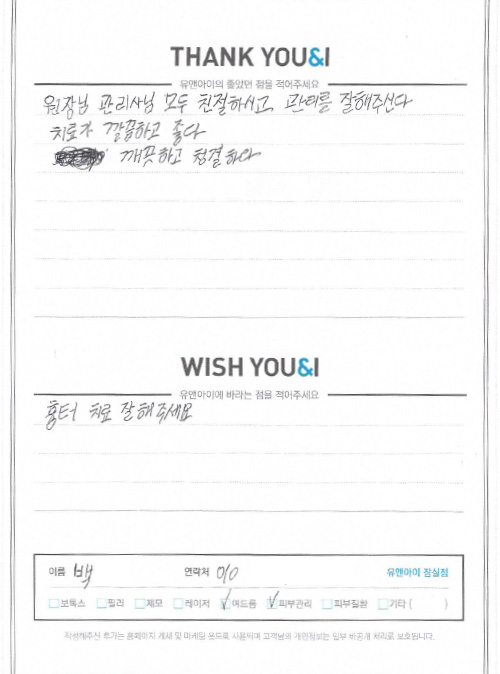 THANK YOU&I
유앤아이의 좋았던 점을 적어주세요
원장님 관리사님 모두 친절하시고, 관리를 잘해주신다
치료가 깔끔하고 좋다
깨끗하고 청결하다
WISH YOU&I
유앤아이에 바라는 점을 적어주세요
흉터 치료 잘해주세요
이름 백 연락처 010 유앤아이 잠실점
보톡스 필러 제모 레이저 여드름 피부관리 피부질환 기타 ( )
작성해주신 후기는 홈페이지 게재 및 마케팅 용도로 사용되며 고객님의 개인정보는 일부 비공개 처리로 보호됩니다.